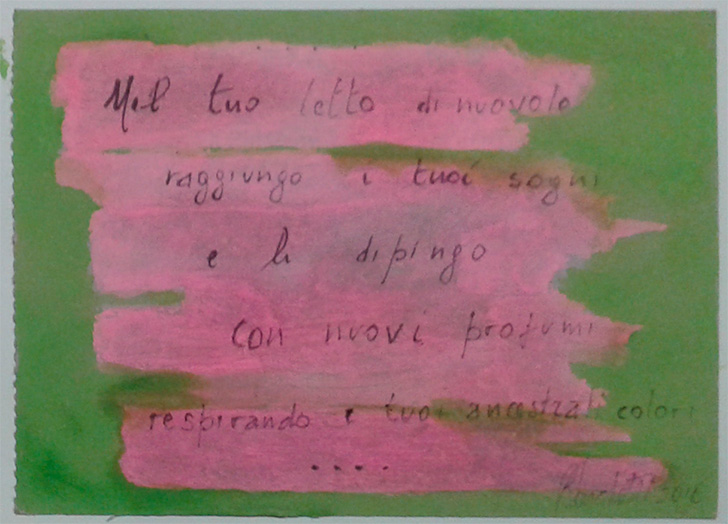 Nel tuo letto di nuovole
raggiungo i tuoi sogni
e li dipingo
con nuovi profumi
respirando i tuoi ancestrali colori
....